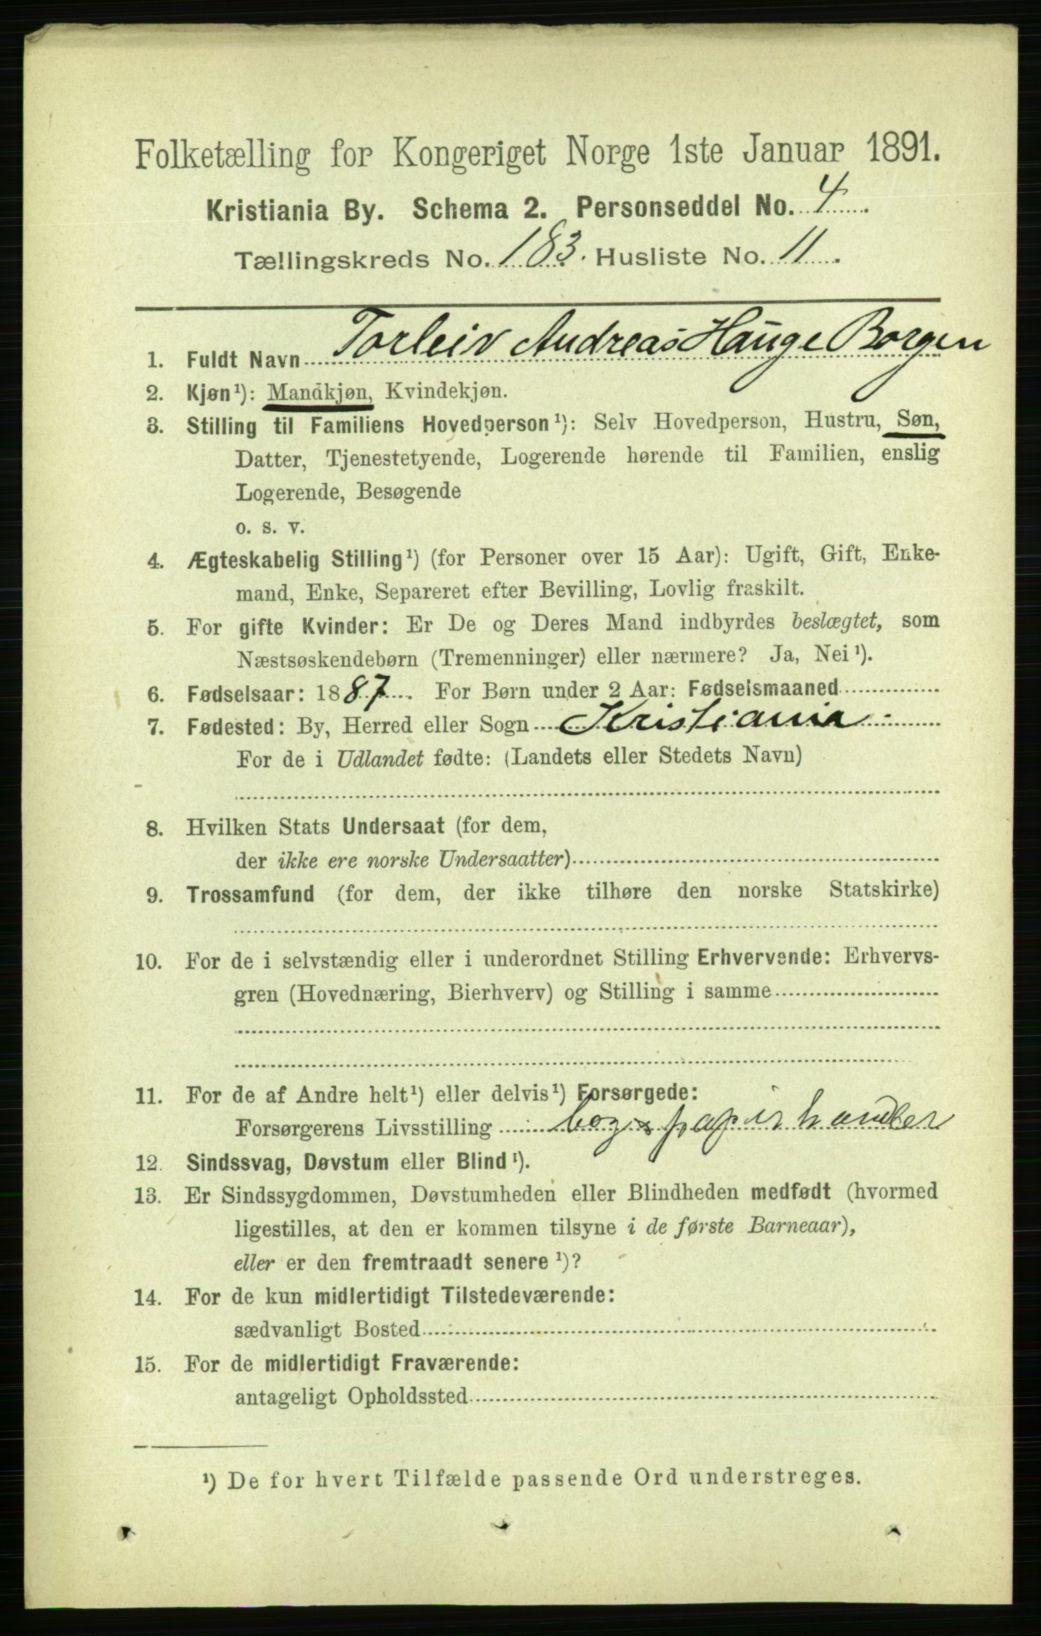 Folketælling for Kongeriget Norge 1ste Januar 1891.
Kristiania By. Schema 2. Personseddel No. 4
Tællingskreds No. 183. Husliste No. 11
1. Fuldt Navn Torleiv Andreas Hauge Borgen
2. Kjøn¹): Mandkjøn, Kvindekjøn.
3. Stilling til Familiens Hovedperson¹): Selv Hovedperson, Hustru, Søn,
Datter, Tjenestetyende, Logerende hørende til Familien, enslig
Logerende, Besøgende
o. s. v.
4. Ægteskabelig Stilling¹) (for Personer over 15 Aar): Ugift, Gift, Enke-
mand, Enke, Separeret efter Bevilling, Lovlig fraskilt.
5. For gifte Kvinder: Er De og Deres Mand indbyrdes beslægtet, som
Næstsøskendebørn (Tremenninger) eller nærmere? Ja, Nei¹).
6. Fødselsaar: 1887. For Børn under 2 Aar: Fødselsmaaned
7. Fødested: By, Herred eller Sogn Kristiania.
For de i Udlandet fødte: (Landets eller Stedets Navn)
8. Hvilken Stats Undersaat (for dem,
der ikke ere norske Undersaatter)
9. Trossamfund (for dem, der ikke tilhøre den norske Statskirke)
10. For de i selvstændig eller i underordnet Stilling Erhvervende: Erhvervs-
gren (Hovednæring, Bierhverv) og Stilling i samme
11. For de af Andre helt¹) eller delvis¹) Forsørgede:
Forsørgerens Livsstilling bog & papirhandler
12. Sindssvag, Døvstum eller Blind¹).
13. Er Sindssygdommen, Døvstumheden eller Blindheden medfødt (hvormed
ligestilles, at den er kommen tilsyne i de første Barneaar),
eller er den fremtraadt senere¹)?
14. For de kun midlertidigt Tilstedeværende:
sædvanligt Bosted
15. For de midlertidigt Fraværende:
antageligt Opholdssted
¹) De for hvert Tilfælde passende Ord understreges.